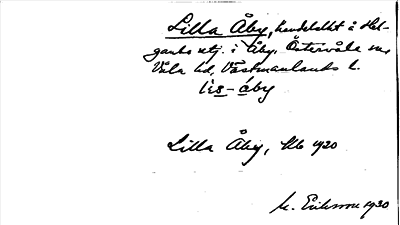 Lilla Åby, hendelsbt å Hel-
ganbo utj. i Åby, Östervåla sn,
Våla hd, Västmanlands l.
lìs-åby
Lilla Åby, Stb 1920
M. Eriksson 1930